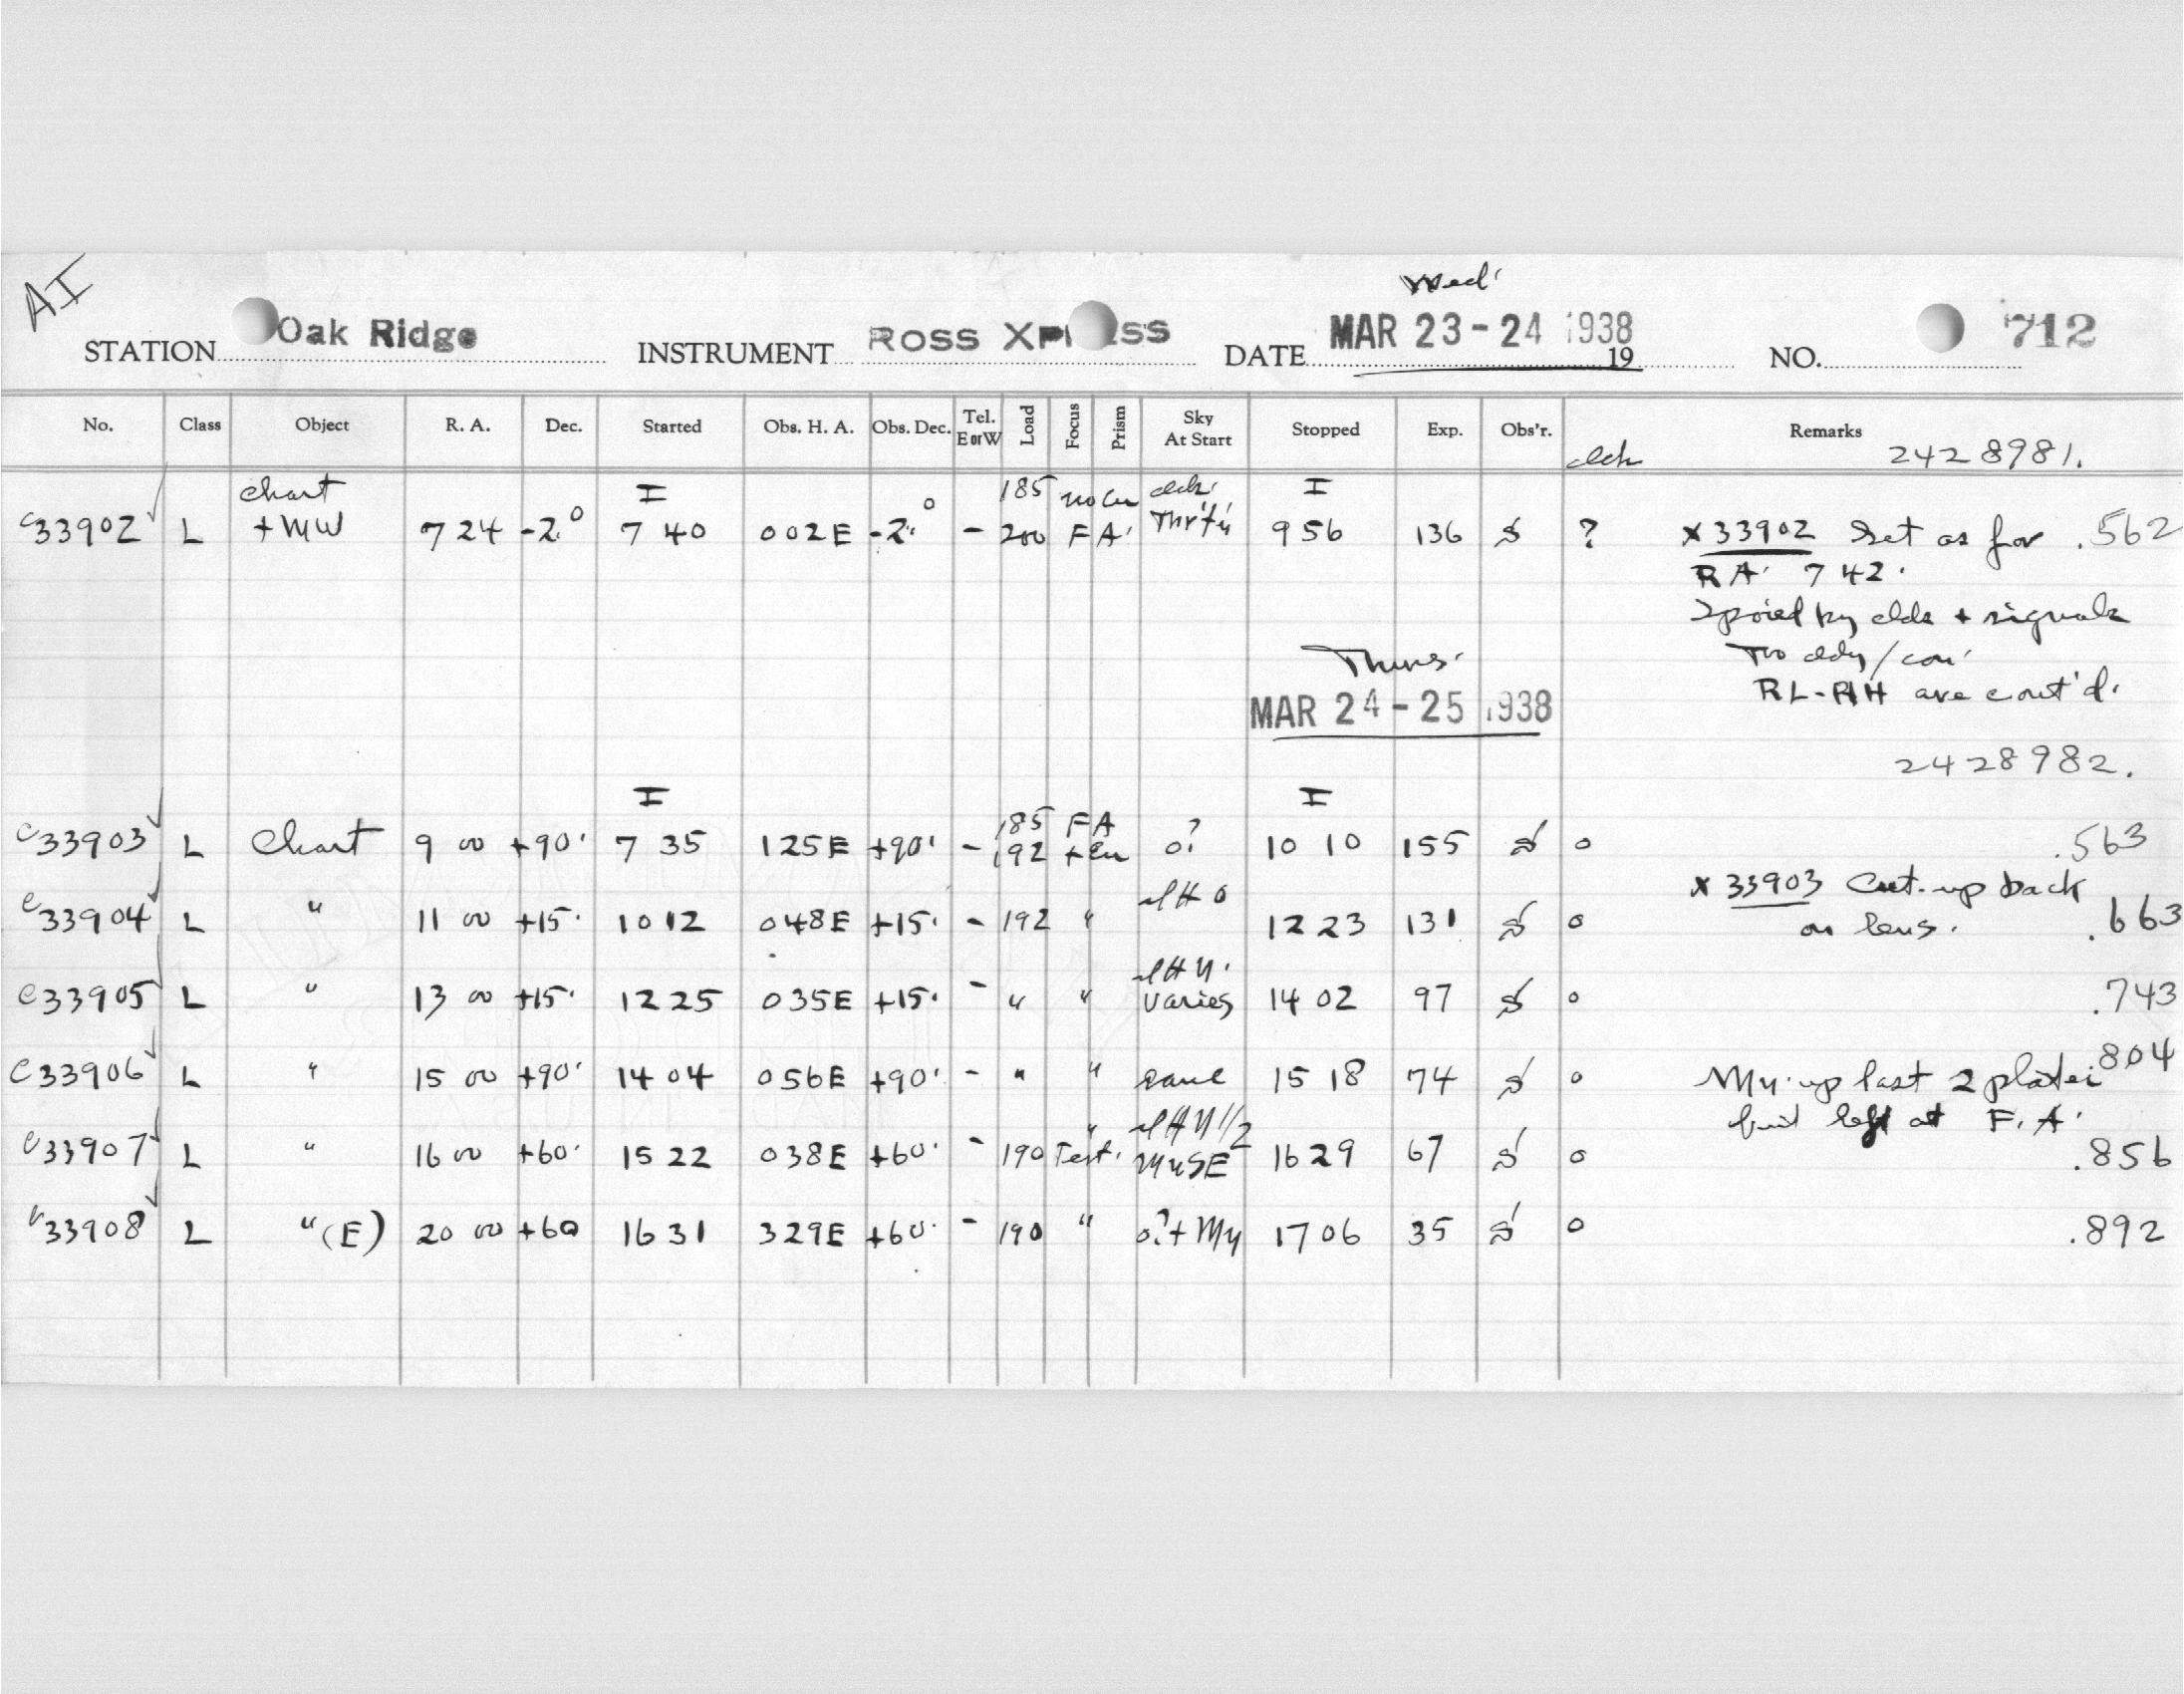 AI
Wed'
STATION Oak Ridge INSTRUMENT ROSS XPRESS DATE MAR 23-24 1938 19 NO. 712
No. Class Object R. A. Dec. Started Obs. H. A. Obs. Dec. Tel. E or W Load Focus Prism Sky At Start Stopped Exp. Obs'r. Remarks
2428981.
chart I 185 I
c33902 L + MW 7 24 -2° 7 40 002E -2° - 200 F A' 9 56 136 S ? x 33902 Set as for .562
RA' 742.
clds + signals
Thurs'
RL-AH are cont'd.
MAR 24-25 1938
2428982.
I I
185 F A
c33903 L Chart 9 00 +90' 7 35 125E +90' - 192 o? 10 10 155 S o .563
x 33903 Cut-up back
c33904 L " 11 00 +15. 10 12 048E +15. - 192 " 12 23 131 S o on lens. .663
c33905 L " 13 00 +15. 12 25 035E +15. - " " varies 14 02 97 S o .743
c33906 L " 15 00 +90' 14 04 056E +90' - " " same 15 18 74 S o My-up last 2 plates .804
but left at F.A.
c33907 L " 16 00 +60' 15 22 038E +60' - 190 Test. 16 29 67 S o .856
c33908 L "(E) 20 00 +60 16 31 329E +60. - 190 " o?+ My 17 06 35 S o .892